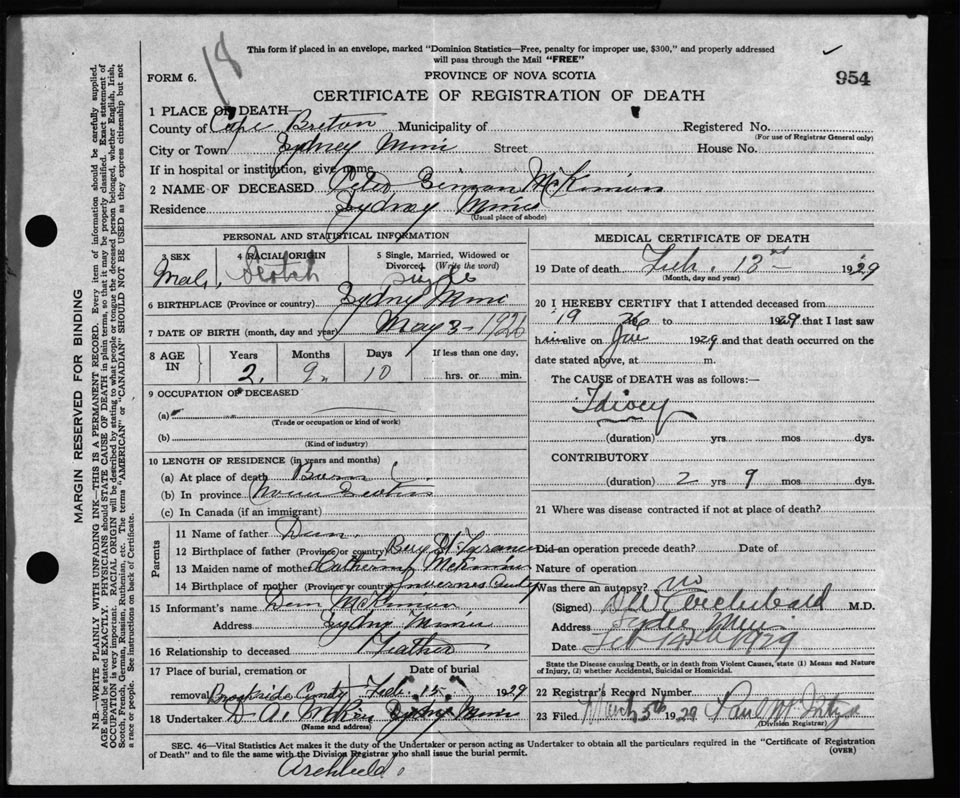 18
This form if placed in an envelope, marked "Dominion Statistics—Free, penalty for improper use, $300," and properly addressed
will pass through the Mail "FREE"
FORM 6. PROVINCE OF NOVA SCOTIA 954
CERTIFICATE OF REGISTRATION OF DEATH
1 PLACE OF DEATH
County of Cape Breton Municipality of Registered No.
(For use of Registrar General only)
City or Town Sydney Mines Street House No.
If in hospital or institution, give name
2 NAME OF DECEASED Peter McKinnon
Residence Sydney Mines
(Usual place of abode)
PERSONAL AND STATISTICAL INFORMATION
3 SEX Male 4 RACIAL ORIGIN Scotch 5 Single, Married, Widowed or
Divorced (Write the word) Single
6 BIRTHPLACE (Province or country) Sydney Mines
7 DATE OF BIRTH (month, day and year) May 3-1926
8 AGE IN Years Months Days If less than one day,
2 9 10 hrs. or min.
9 OCCUPATION OF DECEASED
(a)
(Trade or occupation or kind of work)
(b)
(Kind of industry)
10 LENGTH OF RESIDENCE (in years and months)
(a) At place of death
(b) In province Nova Scotia
(c) In Canada (if an immigrant)
Parents
11 Name of father Dan
12 Birthplace of father (Province or country) Bay St
13 Maiden name of mother McKinnon
14 Birthplace of mother (Province or country) Inverness
15 Informant's name Dan McKinnon
Address Sydney Mines
16 Relationship to deceased Father
17 Place of burial, cremation or Date of burial
removal Brookside Feb. 15 1929
18 Undertaker D A. Sydney Mines
(Name and address)
MEDICAL CERTIFICATE OF DEATH
19 Date of death Feb. 13 1929
(Month, day and year)
20 I HEREBY CERTIFY that I attended deceased from
1926 to 1929 that I last saw
him alive on Jan 1929 and that death occurred on the
date stated above, at m.
The CAUSE of DEATH was as follows:—
Idiocy
(duration) yrs mos dys.
CONTRIBUTORY
(duration) 2 yrs 9 mos dys.
21 Where was disease contracted if not at place of death?
Did an operation precede death? Date of
Nature of operation
Was there an autopsy? no
(Signed) Archibald M.D.
Address
Date Feb 14th 1929
State the Disease causing Death, or in death from Violent Causes, state (1) Means and Nature
of Injury, (2) whether Accidental, Suicidal or Homicidal.
22 Registrar's Record Number
23 Filed March 5th 1929 Paul
(Division Registrar)
SEC. 46—Vital Statistics Act makes it the duty of the Undertaker or person acting as Undertaker to obtain all the particulars required in the "Certificate of Registration
of Death" and to file the same with the Division Registrar who shall issue the burial permit. (OVER)
MARGIN RESERVED FOR BINDING
N.B.—WRITE PLAINLY WITH UNFADING INK—THIS IS A PERMANENT RECORD. Every item of information should be carefully supplied.
AGE should be stated EXACTLY. PHYSICIANS should STATE CAUSE OF DEATH in plain terms, so that it may be properly classified. Exact statement of
OCCUPATION is very important. RACIAL ORIGIN will be described by stating to what people or tongue the deceased person belonged, whether English, Irish,
Scotch, French, German, Russian, Ruthenian, etc. The terms "AMERICAN" or "CANADIAN" SHOULD NOT BE USED as they express citizenship but not
a race or people. See instructions on back of Certificate.